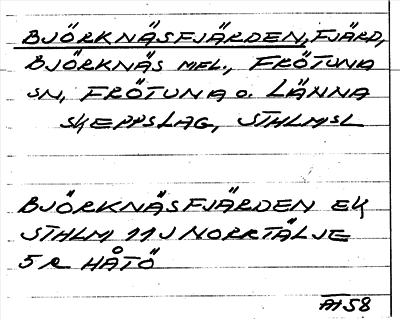 BJÖRKNÄSFJÄRDEN, FJÄRD,
BJÖRKNÄS MEL., FRÖTUNA
SN, FRÖTUNA O. LÄNNA
SKEPPSLAG, STHLMSL
BJÖRKNÄSFJÄRDEN EK
STHLM 11J NORRTÄLJE
5 R HÅTÖ
AH 58